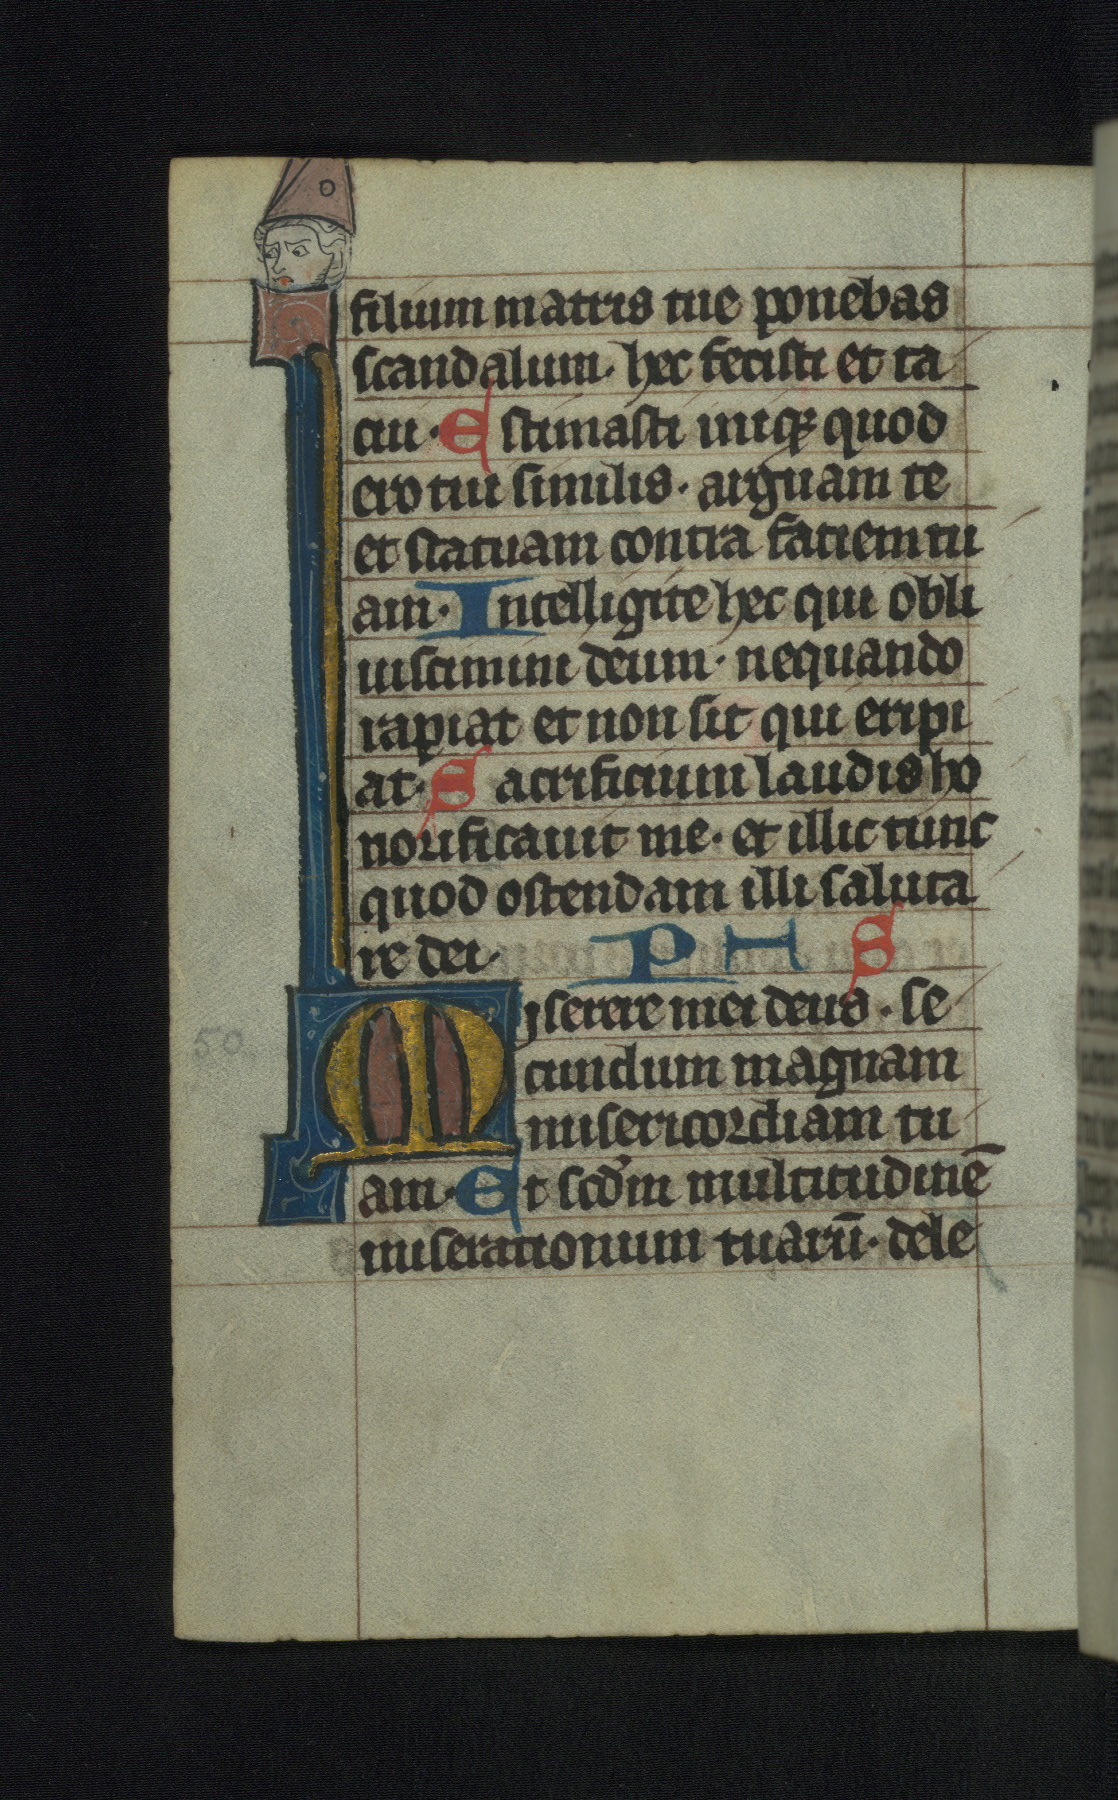 filium matris tue ponebas
scandalum· hec fecisti et ta
cui· Estimasti iniqꝫ quod
ero tui similis· arguam te
et statuam contra faciem tu
am· Intelligite hec qui obli
uiscimini deum· nequando
rapiat et non sit qui eripi
at· Sacrificium laudis ho
norificauit me· et illic tunc
quod ostendam illi saluta
re dei· PHS
Mjserere mei deus· se
50
cundum magnam
misericordiam tu
am· Et scd̓m multitudinē
miserationum tuarū· dele